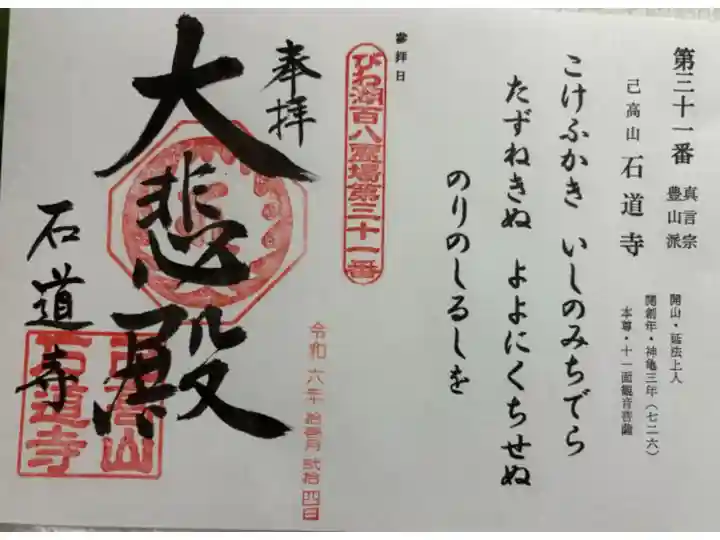 第三十一番
真言宗
豊山派
己高山 石道寺
開山・延法上人
開創年・神亀三年(七二六)
本尊・十一面観音菩薩
こけふかき いしのみちでら
たずねきぬ よよにくちせぬ
のりのしるしを
參拝日
びわ湖百八霊場第三十一番
奉拝
令和六年 拾壱月 弐拾四日
大悲殿
石道寺
己高山
石道寺